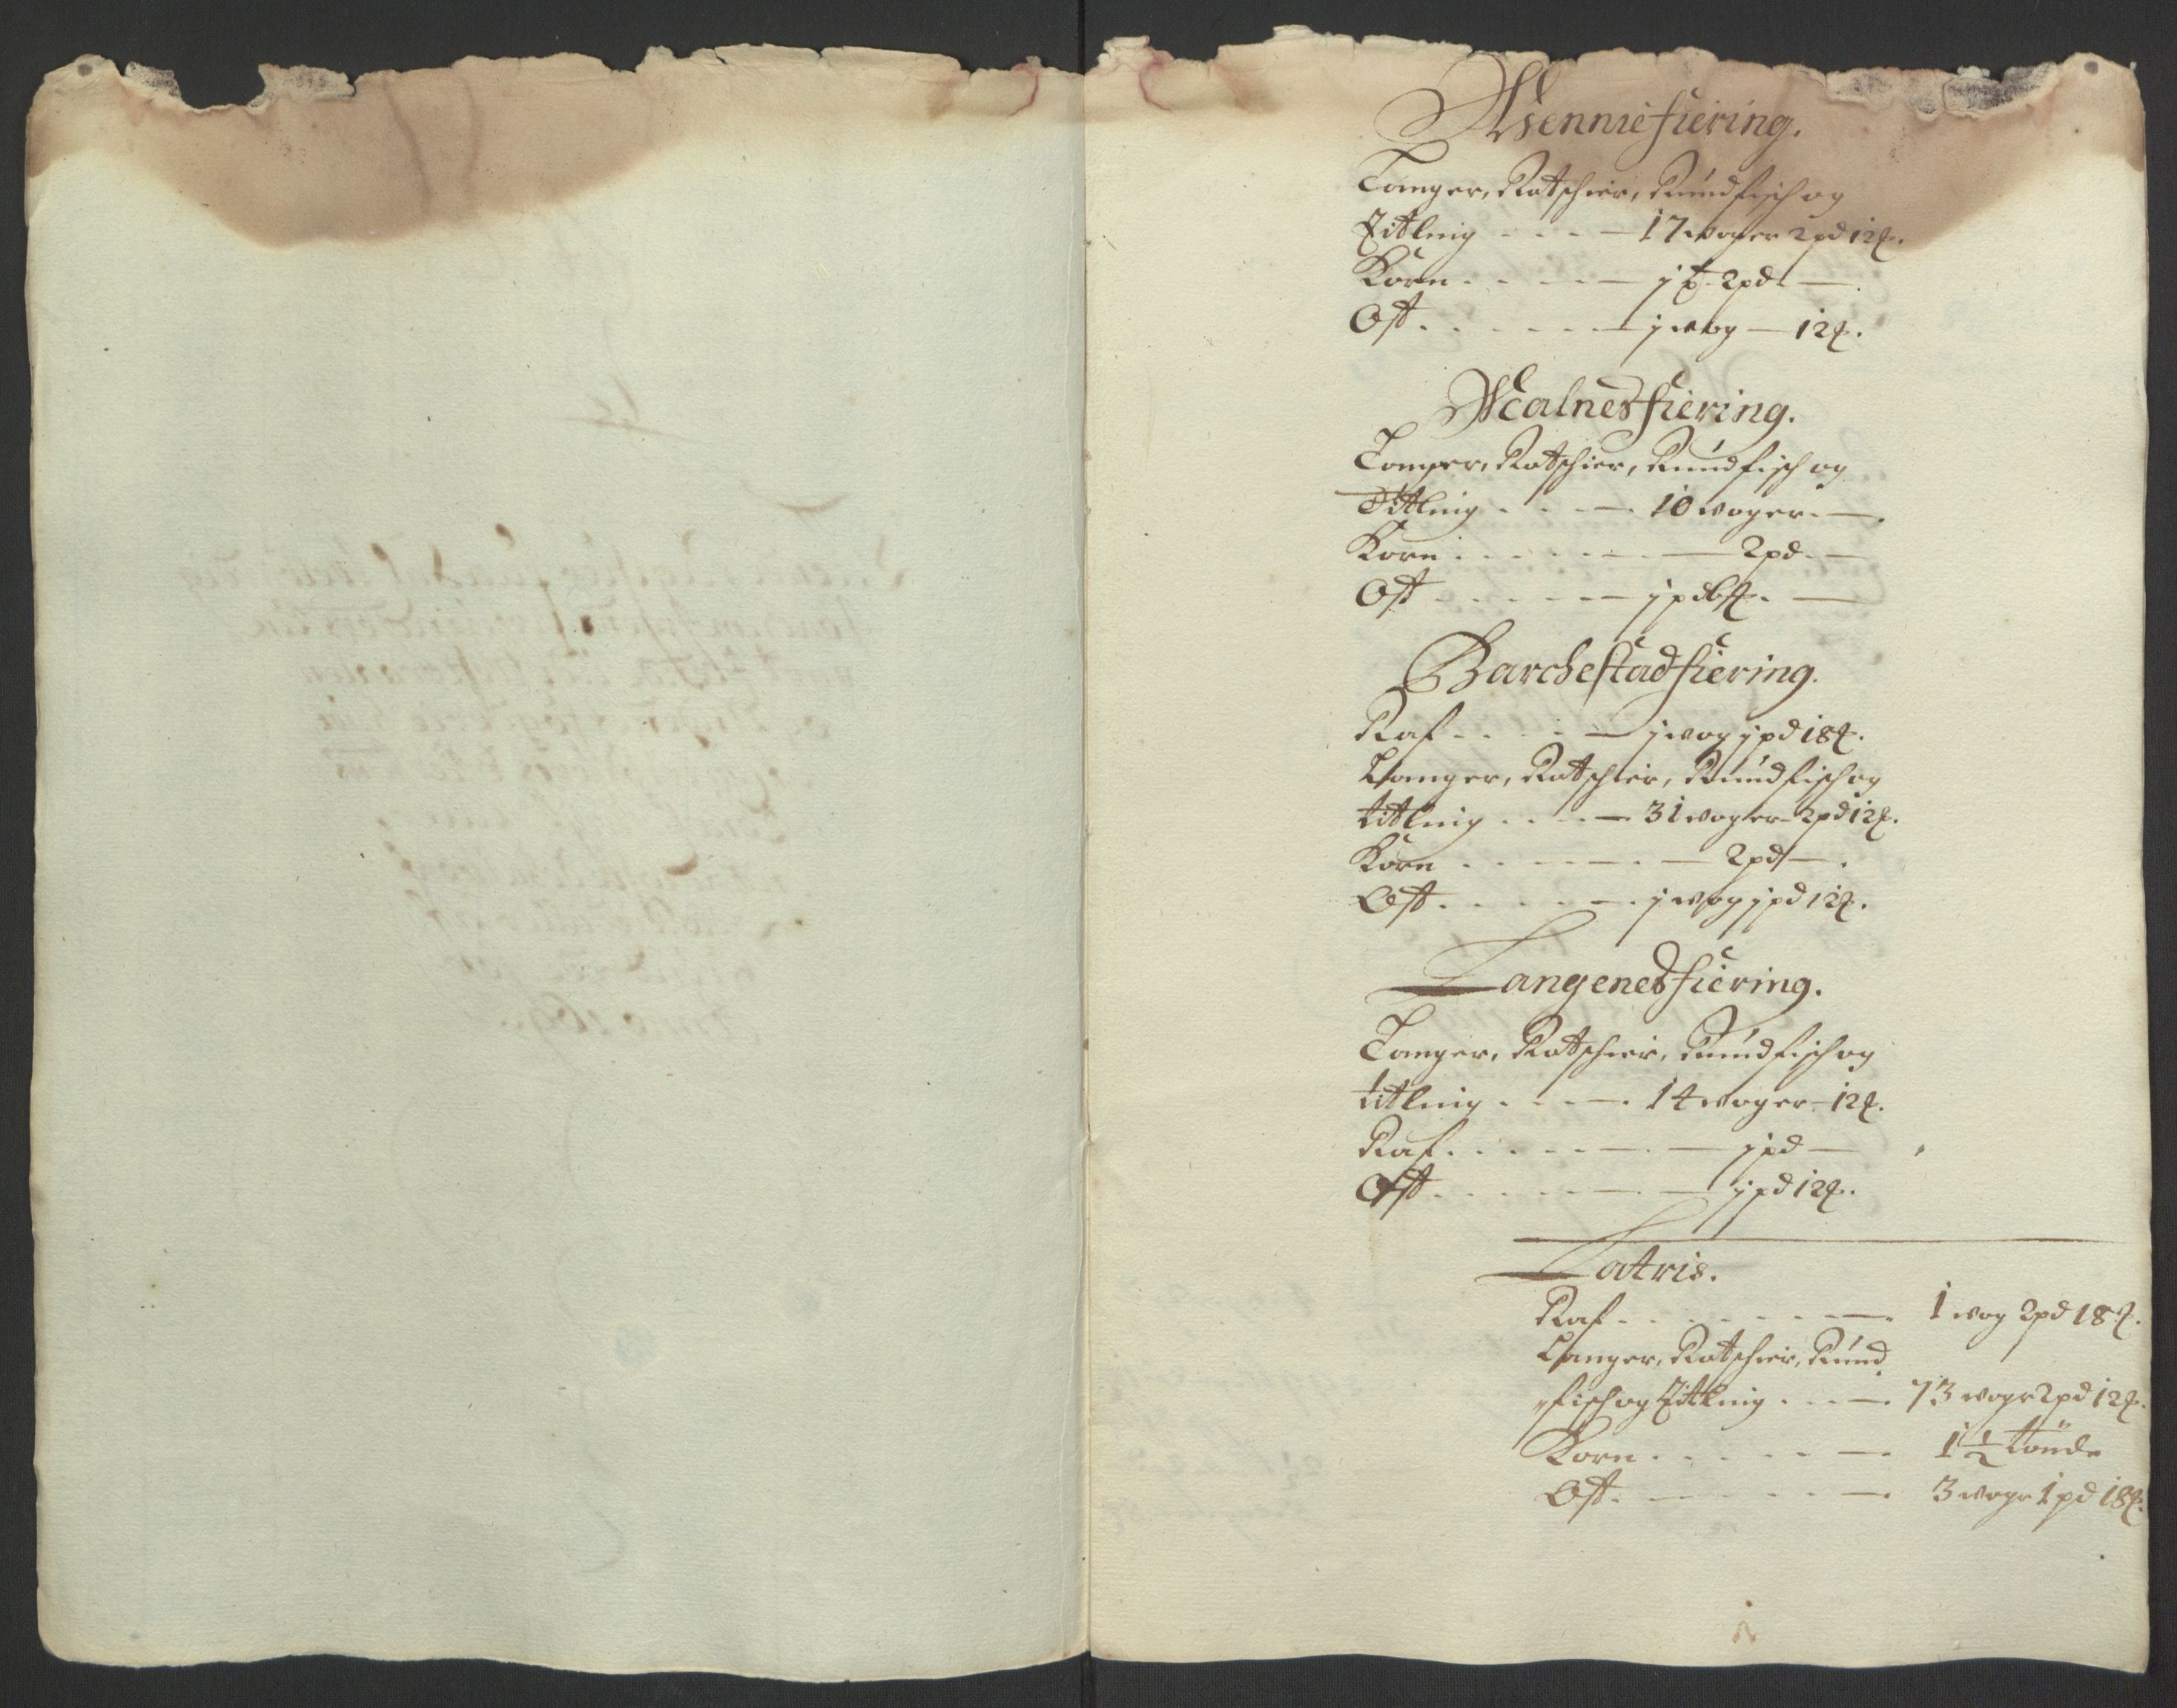 Menniefiering.
Langer, Rotschier, Rundfisch og
Titling . . . . 17 woger 2 pd 12 ℔.
Korn . . . . j t. 2 pd —
Ost . . . . j wog — 12 ℔.
Malnesfiering.
Langer, Rotschier, Rundfisch og
Titling . . . 10 woger —
Korn . . . . 2 pd —
Ost . . . . j pd 6 ℔. —
Barchestadfiering.
Raf . . . . j wog j pd 18 ℔.
Langer, Rotschier, Rundfisch og
titling . . . 31 woger 2 pd 12 ℔.
Korn . . . . 2 pd —
Ost . . . . j wog j pd 12 ℔.
Langenesfiering.
Langer, Rotschier, Rundfisch og
titling . . . 14 woger — 12 ℔.
Raf . . . . j pd —
Ost . . . . j pd 12 ℔.
Latris.
Raf . . . . 1 wog 2 pd 18 ℔.
Langer, Rotschier, Rund
fisch og Titling . . . 73 wogr 2 pd 12 ℔.
Korn . . . . 1 1/2 tönde
Ost . . . . 3 wogr 1 pd 18 ℔.